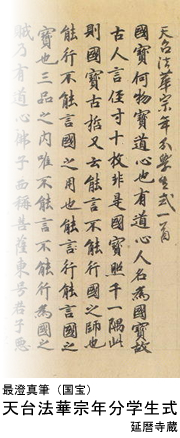 天台法華宗年分學生式一首
國寶何物寶道心也有道心人名為國寶故
古人言徑寸十枚非是國寶照千一隅此
則國寶古哲又云能言不能行國之師也
能行不能言國之用也能行能言國之
寶也三品之内唯不能言不能行為國之
賊乃有道心佛子西稱菩薩東号君子惡
最澄真筆（国宝）
天台法華宗年分学生式
延暦寺蔵